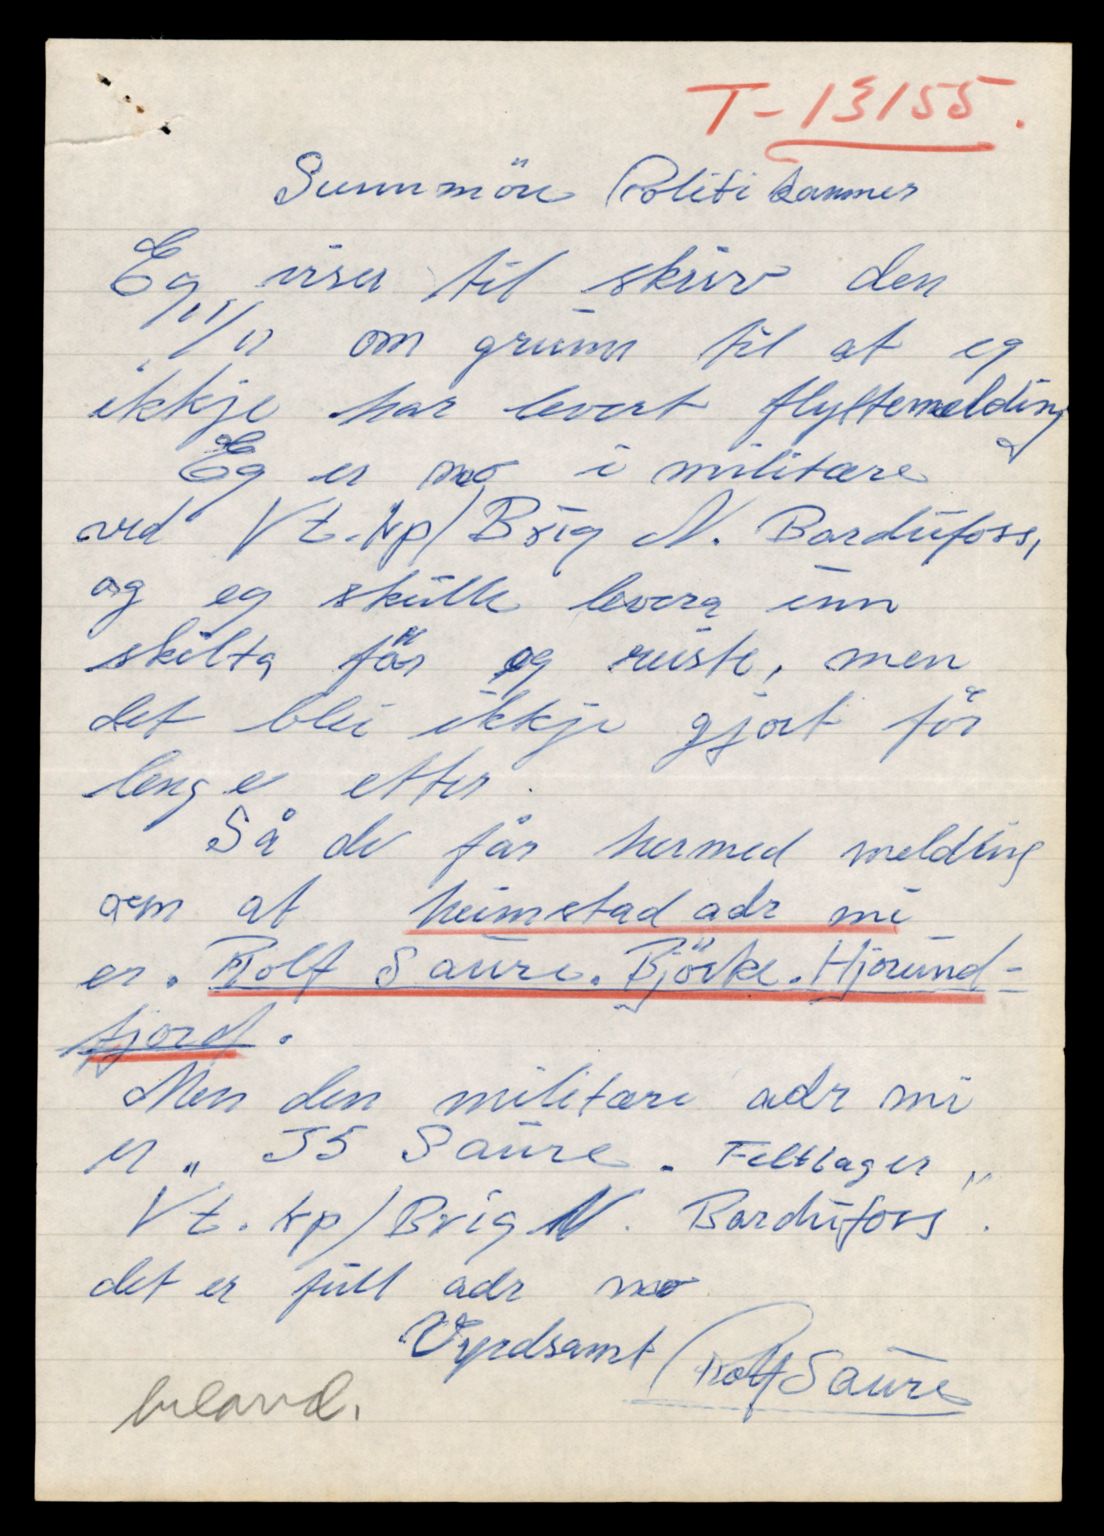 T-13155.
Sunnmöre Politikammer
Eg viser til skriv den
11/12 om grunn til at eg
ikkje har levert flyttemelding
Eg er no i militære
ved Vt.kp/Brig N. Bardufoss,
og eg skulle levera inn
skilta för eg reiste, men
det blei ikkje gjort för
lenge etter.
Så de får hermed melding
om at heimstad adr mi
er. Rolf Saure. Björke. Hjorund-
fjord.
Men den militære adr mi
er „ 55 Saure. Feltlager „
Vt.kp/Brig N. Bardufoss.
det er full adr no
Vyrdsamt Rolf Saure